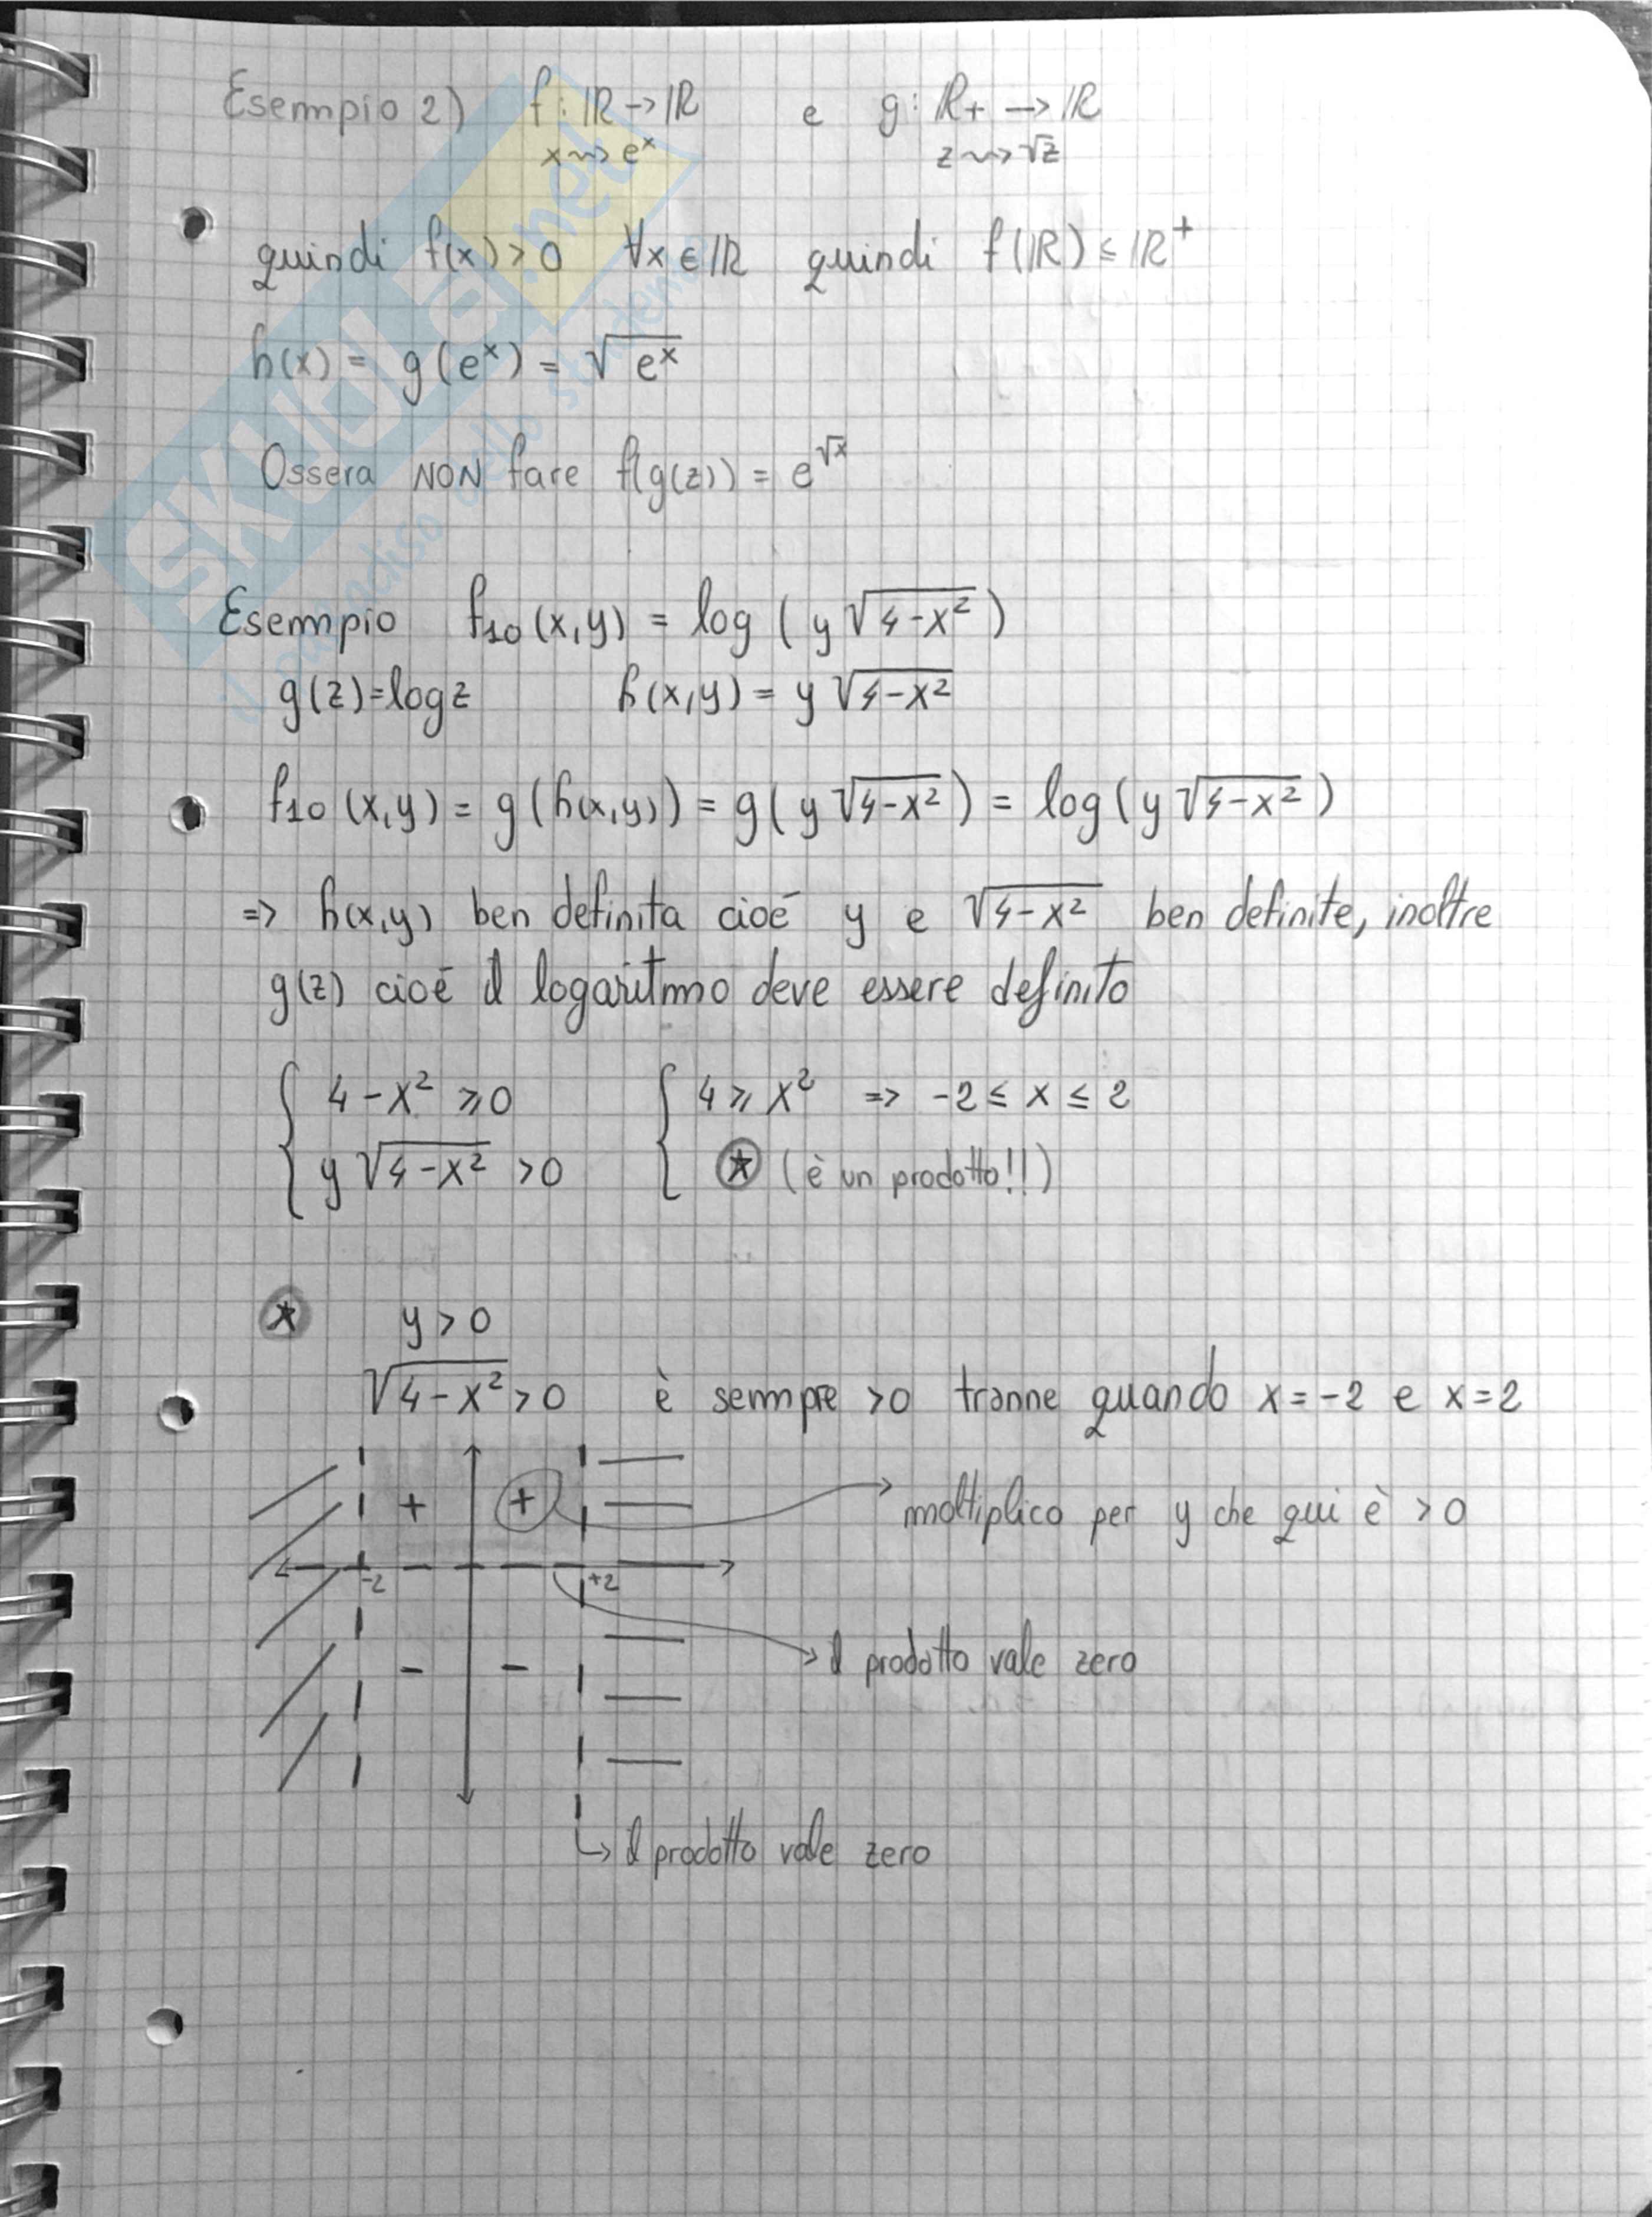 Esempio 2) f: ℝ → ℝ e g: ℝ+ → ℝ
x ⇝ eˣ z ⇝ √z
quindi f(x) > 0 ∀x ∈ ℝ quindi f(ℝ) ≤ ℝ⁺
h(x) = g(eˣ) = √eˣ
Ossera NON fare f(g(z)) = e^√x
Esempio f₁₀(x,y) = log (y √(4-x²))
g(z)=log z h(x,y) = y √(4-x²)
f₁₀(x,y) = g(h(x,y)) = g(y √(4-x²)) = log(y √(4-x²))
=> h(x,y) ben definita cioé y e √(4-x²) ben definite, inoltre
g(z) cioé il logaritmo deve essere definito
{ 4-x² ≥ 0 { 4 ≥ x² => -2 ≤ x ≤ 2
y √(4-x²) > 0 ⍟ (è un prodotto!!)
⍟ y > 0
√(4-x²) > 0 è sempre >0 tranne quando x=-2 e x=2
+ + moltiplico per y che qui è >0
-2 +2
- - il prodotto vale zero
↳ il prodotto vale zero
SKUOLA.net
il paradiso dello studente